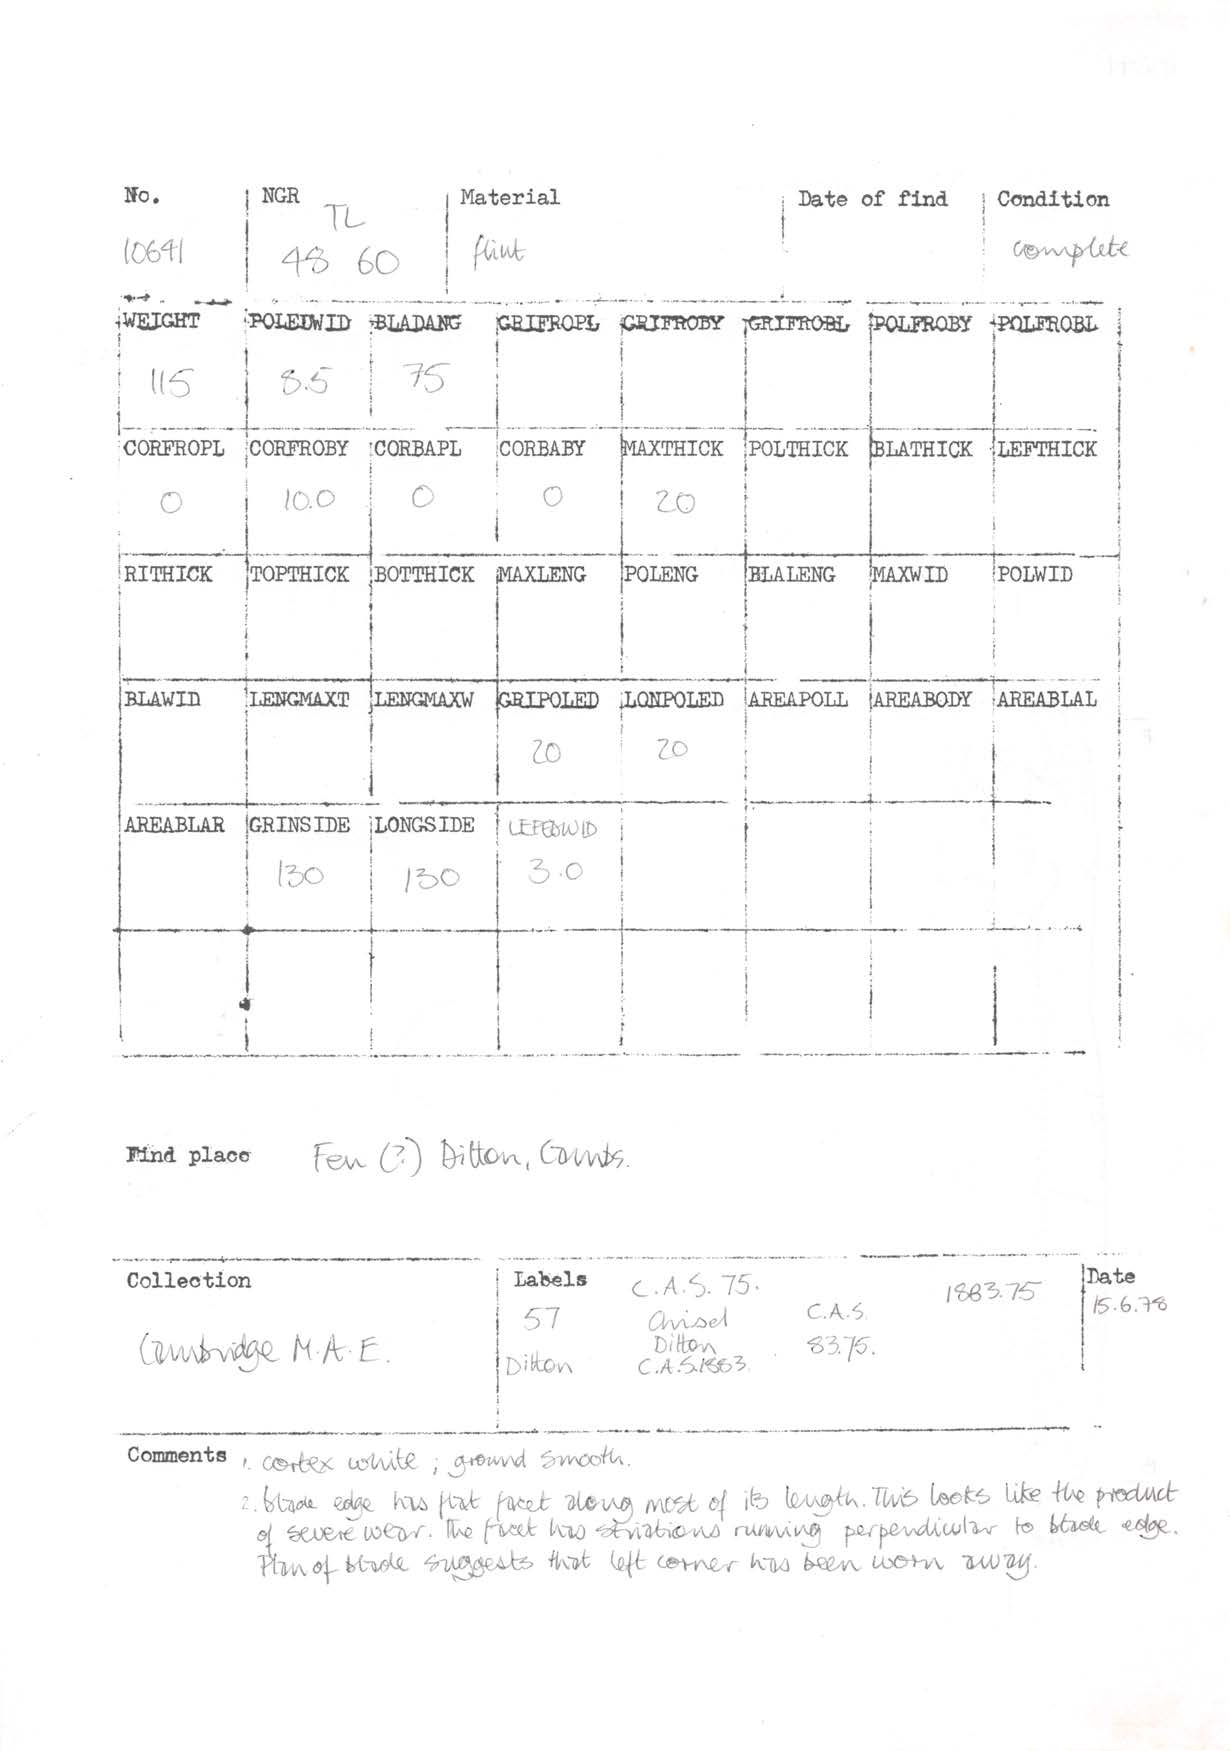 No. NGR Material Date of find Condition
TL
10641 48 60 flint complete
WEIGHT POLEDWID BLADANG GRIFROPL GRIFROBY GRIFROBL POLFROBY POLFROBL
115 8.5 75
CORFROPL CORFROBY CORBAPL CORBABY MAXTHICK POLTHICK BLATHICK LEFTHICK
0 10.0 0 0 20
RITHICK TOPTHICK BOTTHICK MAXLENG POLENG BLALENG MAXWID POLWID
BLAWID LENGMAXT LENGMAXW GRIPOLED LONPOLED AREAPOLL AREABODY AREABLAL
20 20
AREABLAR GRINSIDE LONGSIDE LEFEDWID
130 130 3.0
Find place Fen (?) Ditton, Cambs.
Collection Labels C.A.S. 75. 1883.75 Date
57 Chisel C.A.S. 15.6.78
Cambridge M.A.E. Ditton 83.75.
Ditton C.A.S.1883.
Comments 1. cortex white ; ground smooth.
2. blade edge has flat facet along most of its length. This looks like the product
of severe wear. The facet has striations running perpendicular to blade edge.
Plan of blade suggests that left corner has been worn away.